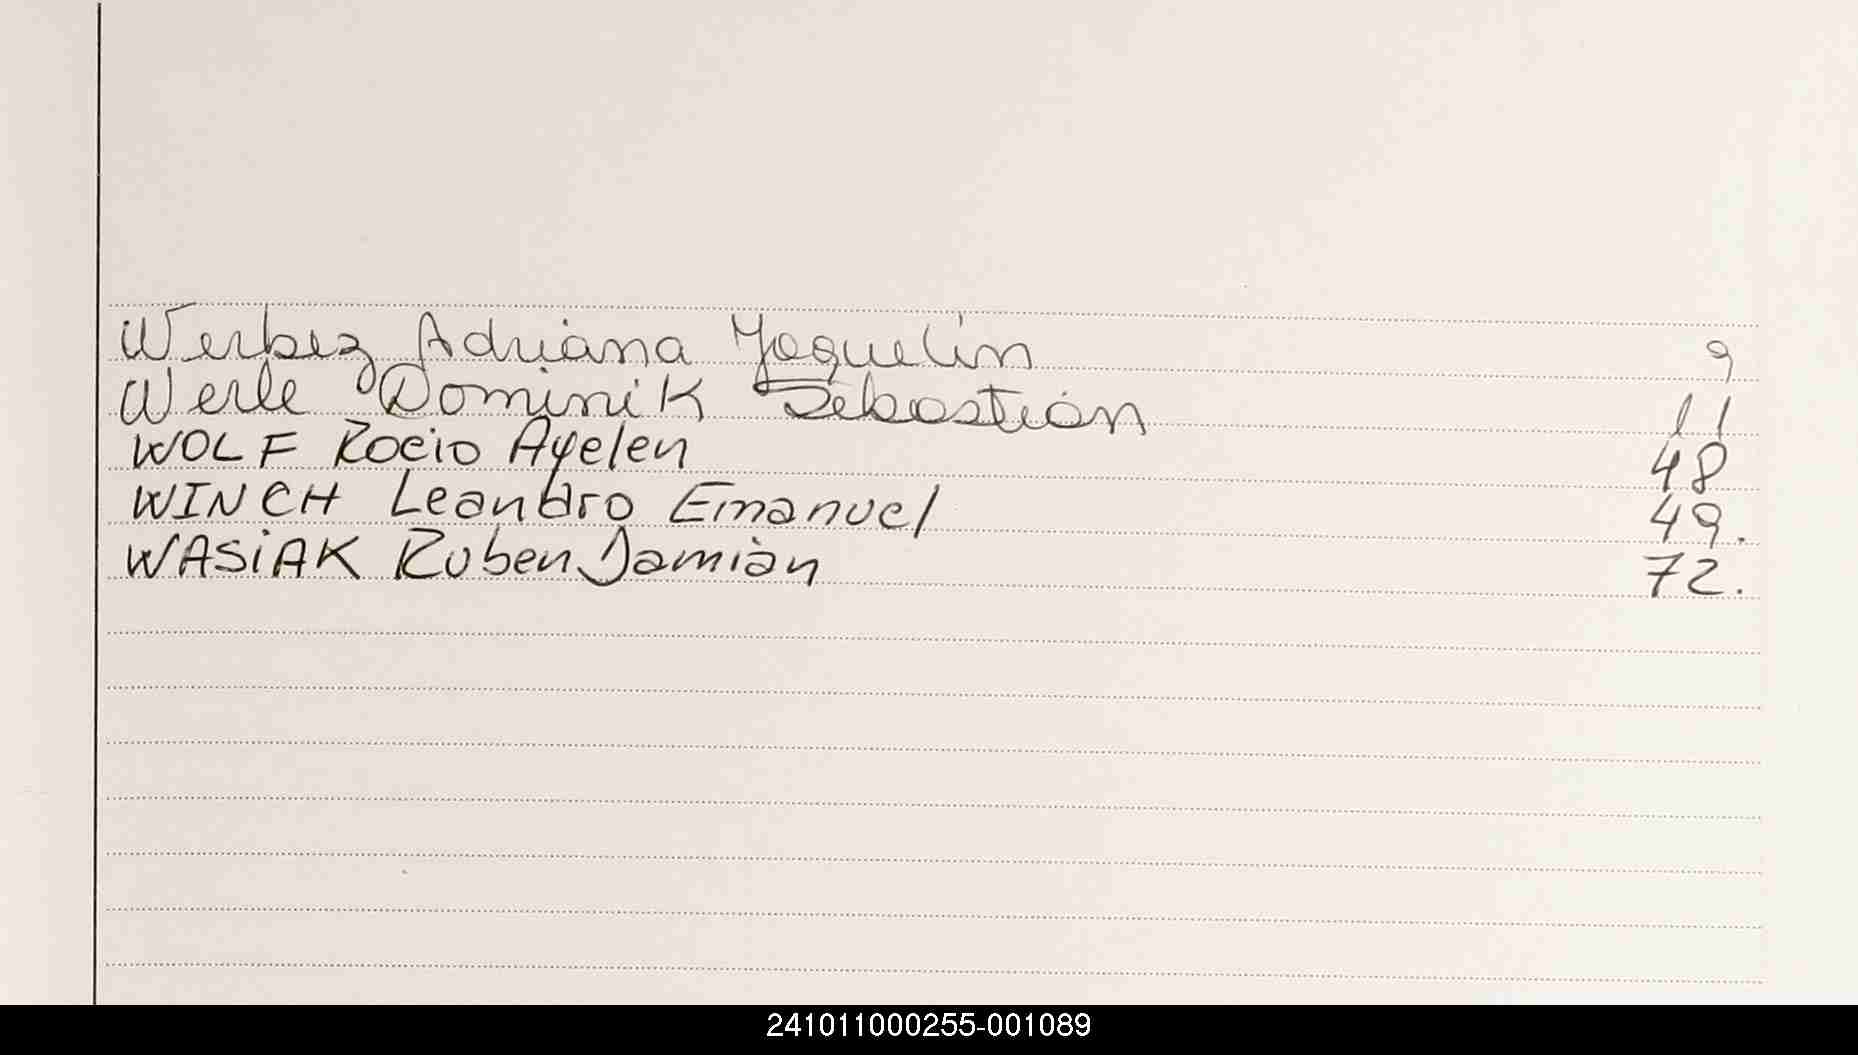 Werbez Adriana Yaquelin 9
Werle Dominik Sebastián 11
WOLF Rocio Ayelen 48
WINCH Leandro Emanuel 49.
WASiAK Ruben Damián 72.
241011000255-001089